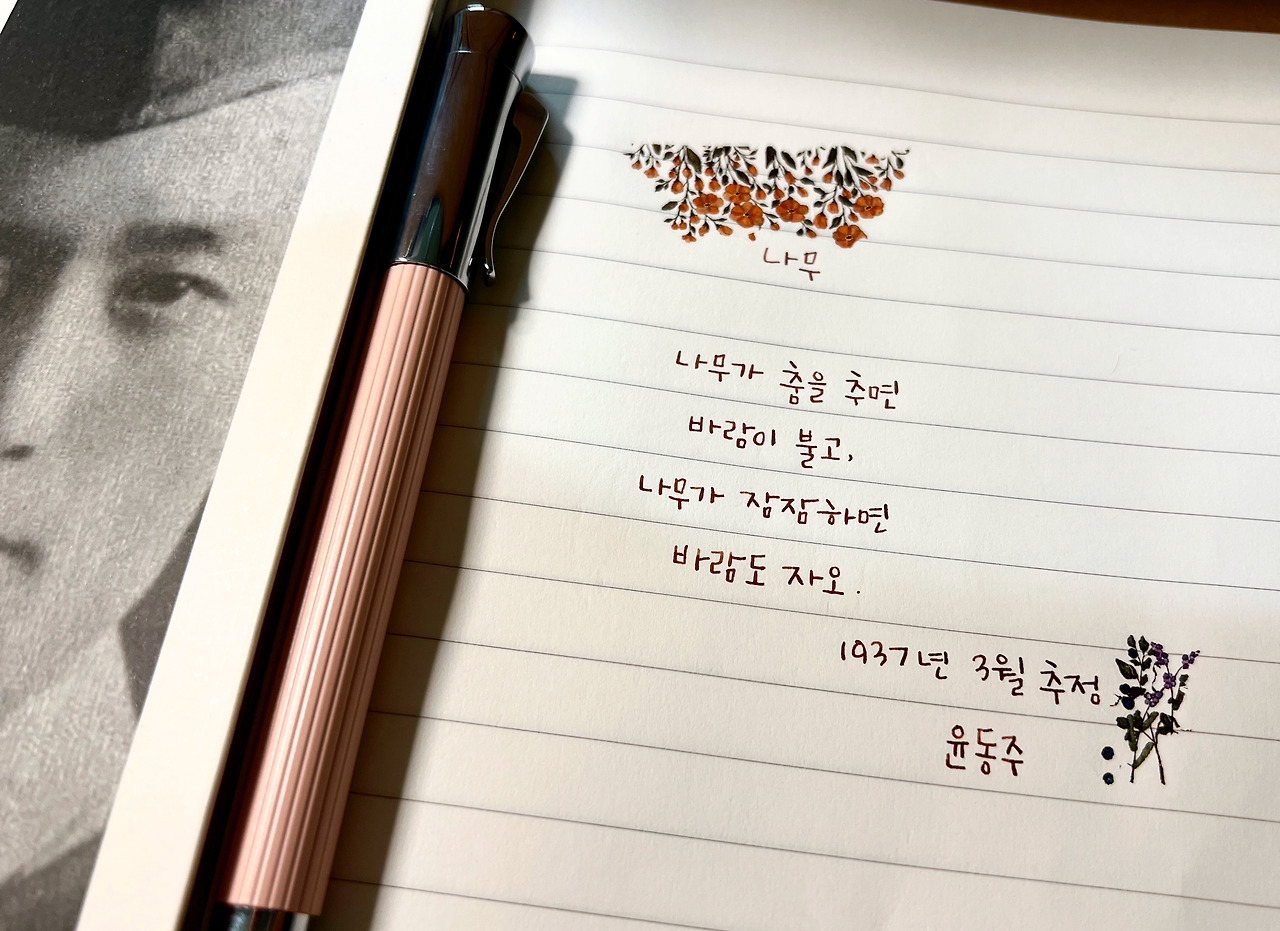 나무
나무가 춤을 추면
바람이 불고,
나무가 잠잠하면
바람도 자오.
1937년 3월 추정
윤동주